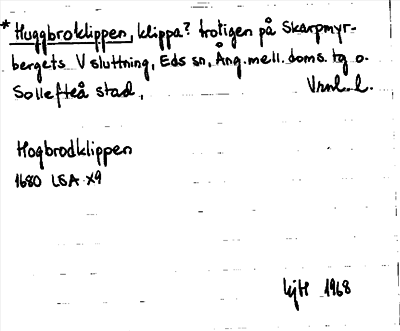 * Huggbroklippen, klippa? trotigen på Skarpmyr-
bergets V sluttning, Eds sn, Ång. mell. doms. tg o.
Sollefteå stad, Vnl. l.
Hogbrodklippen
1680 LSA X9
1968